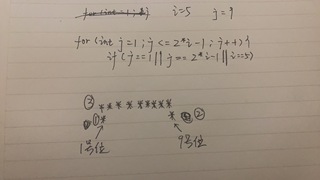 for (int = 1; i=5 j=9
for (int j=1; j <= 2*i-1; j++) {
if (j==1 || j== 2*i-1 || i==5)
③ *********
① * * ②
1号位 9号位